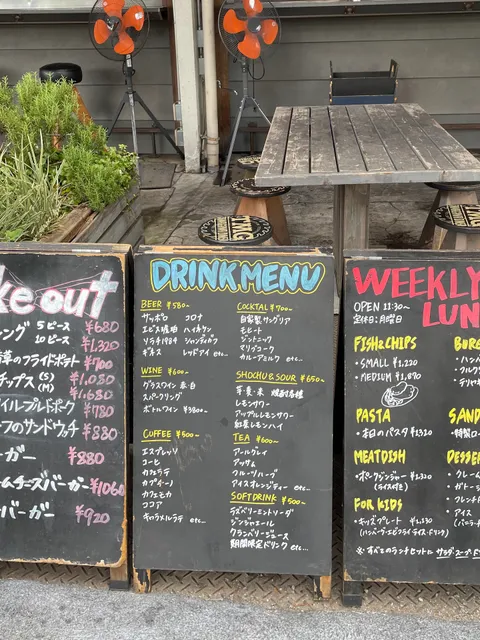 ke out
ング 5ピース ¥680
10ピース ¥1,320
のフライドポテト ¥700
チップス (S) ¥1,050
(M) ¥1,680
プルドポーク ¥780
フのサンドウィッチ ¥880
ーガー ¥880
ームチーズバーガー ¥1060
バーガー ¥920
DRINK MENU
BEER ¥580~
サッポロ コロナ
エビス琥珀 ハイネケン
ヒラチ1984 シャンディガフ
ギネス レッドアイ etc...
WINE ¥600~
グラスワイン 赤・白
スパークリング
ボトルワイン ¥3800~
COFFEE ¥500~
エスプレッソ
コーヒー
カフェラテ
カプチーノ
カフェモカ
ココア
キャラメルラテ etc...
COCKTAIL ¥700~
自家製サングリア
モヒート
ジントニック
マリブコーク
カルーアミルク etc...
SHOCHU & SOUR ¥650~
芋・麦・米
レモンサワー
アップルサワー
紅茶レモンハイ
TEA ¥600~
アールグレイ
アッサム
アイスオレンジティー etc...
SOFTDRINK ¥500~
ラズベリーミントソーダ
ジンジャエール
クランベリージュース
期間限定ドリンク etc...
WEEKLY
LUN
OPEN 11:30~
定休日:月曜日
FISH&CHIPS
・SMALL ¥1,220
・MEDIUM ¥1,890
PASTA
・本日のパスタ ¥1,320
MEATDISH
・ポークジンジャー ¥1,320
(ライス付き)
FOR KIDS
・キッズプレート ¥1,130
(ハンバーグ・エビフライ・ライス・ドリンク)
BUR
・ハンバ
・テリヤキ
SAND
・特製ロ
DESSER
・クレーム
・ガトーシ
・アイス
(バニラ・
※すべてのランチセットに サラダ・スープ・ド